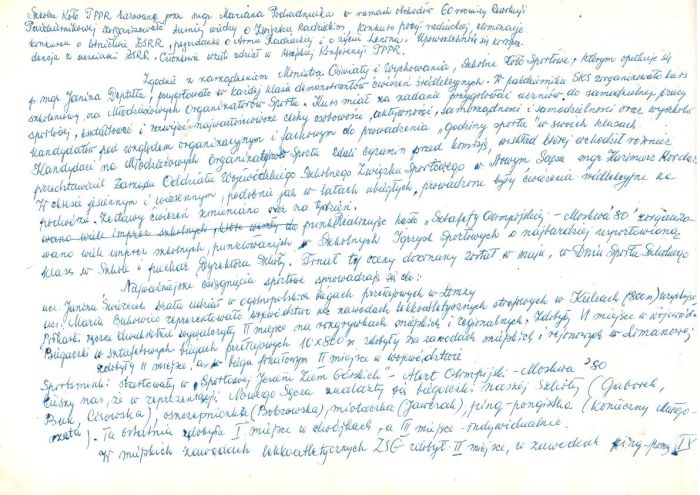 Szkolne Koło TPPR kierowane przez mgr Mariana Podrodznika w ramach obchodów 60 rocznicy Rewolucji
Październikowej zorganizowało turniej wiedzy o Związku Radzieckim, konkurs poezji radzieckiej, eliminacje
konkursu o lotnictwie ZSRR, o Armii Radzieckiej i o życiu Lenina. Upowszechnia się
z uczniami ZSRR. wzięli udział w Miejskiej Konferencji TPPR.
Zgodnie z zarządzeniem Ministra Oświaty i Wychowania, Szkolne Koło Sportowe, którym opiekuje się
p. mgr Janina Deptuła, przygotowało w każdej klasie demonstrantów ćwiczeń śródlekcyjnych. W październiku SKS zorganizowało kurs
szkolny na Młodzieżowych Organizatorów Sportu. Kurs miał za zadanie przygotować uczniów do samodzielnej pracy
sportowej, kształtować i rozwijać najwartościowsze cechy osobowości, aktywności, samorządności i samodzielności oraz
kandydatów pod względem organizacyjnym i fachowym do prowadzenia "godziny sportu" w swoich klasach.
Kandydaci na Młodzieżowych Organizatorów Sportu zdali egzamin przed komisją, w skład której wchodził również
przedstawiciel Zarządu Oddziału Wojewódzkiego Szkolnego Związku Sportowego w Nowym Sączu mgr Kazimierz
W okresie jesiennym i wiosennym, podobnie jak w latach ubiegłych, prowadzone były ćwiczenia śródlekcyjne na
podwórzu. Zestawy ćwiczeń zmieniano raz na tydzień.
Realizując hasło "Sztafety Olimpijskiej - Moskwa 80" zorganizo-
wano wiele imprez szkolnych, punktowanych w Szkolnych Igrzyskach Sportowych o najbardziej usportowioną
klasę w Szkole i puchar Dyrektora Szkoły. Finał tej oceny dokonany został w maju, w Dniu Sportu Szkolnego
Najważniejsze osiągnięcia sportowe sprowadzają się do:
ucz. Janina Świerczek brała udział w ogólnopolskich biegach przełajowych w
ucz. Maria Bukowiec reprezentowała województwo na zawodach lekkoatletycznych strefowych w Kielcach (800m)
Piłkarki ręczne dwukrotnie wywalczyły II miejsce na rozgrywkach miejskich i regionalnych. Zdobyły VI miejsce w wojewódz.
Biegaczki w sztafetowych biegach przełajowych 10x800 m zdobyły na zawodach miejskich i rejonowych w Limanowej
zdobyły II miejsce, a w biegu finałowym II miejsce w województwie
Sportsmenki startowały w "Sportowej Jesieni Ziem Górskich" - Alert Olimpijski - Moskwa '80
Cieszy nas, że w reprezentacji Nowego Sącza znalazły się biegaczki naszej Szkoły (Gaborek,
Buk, Cisowska), oszczepniczka (Bobrowska), miotaczka (Jaworak), ping-pongistka (Konieczny Małgo-
rzata). Ta ostatnia zdobyła I miejsce w dwójkach, a III miejsce - indywidualnie.
W miejskich zawodach lekkoatletycznych ZSE zdobył II miejsce, w zawodach ping-pong IX